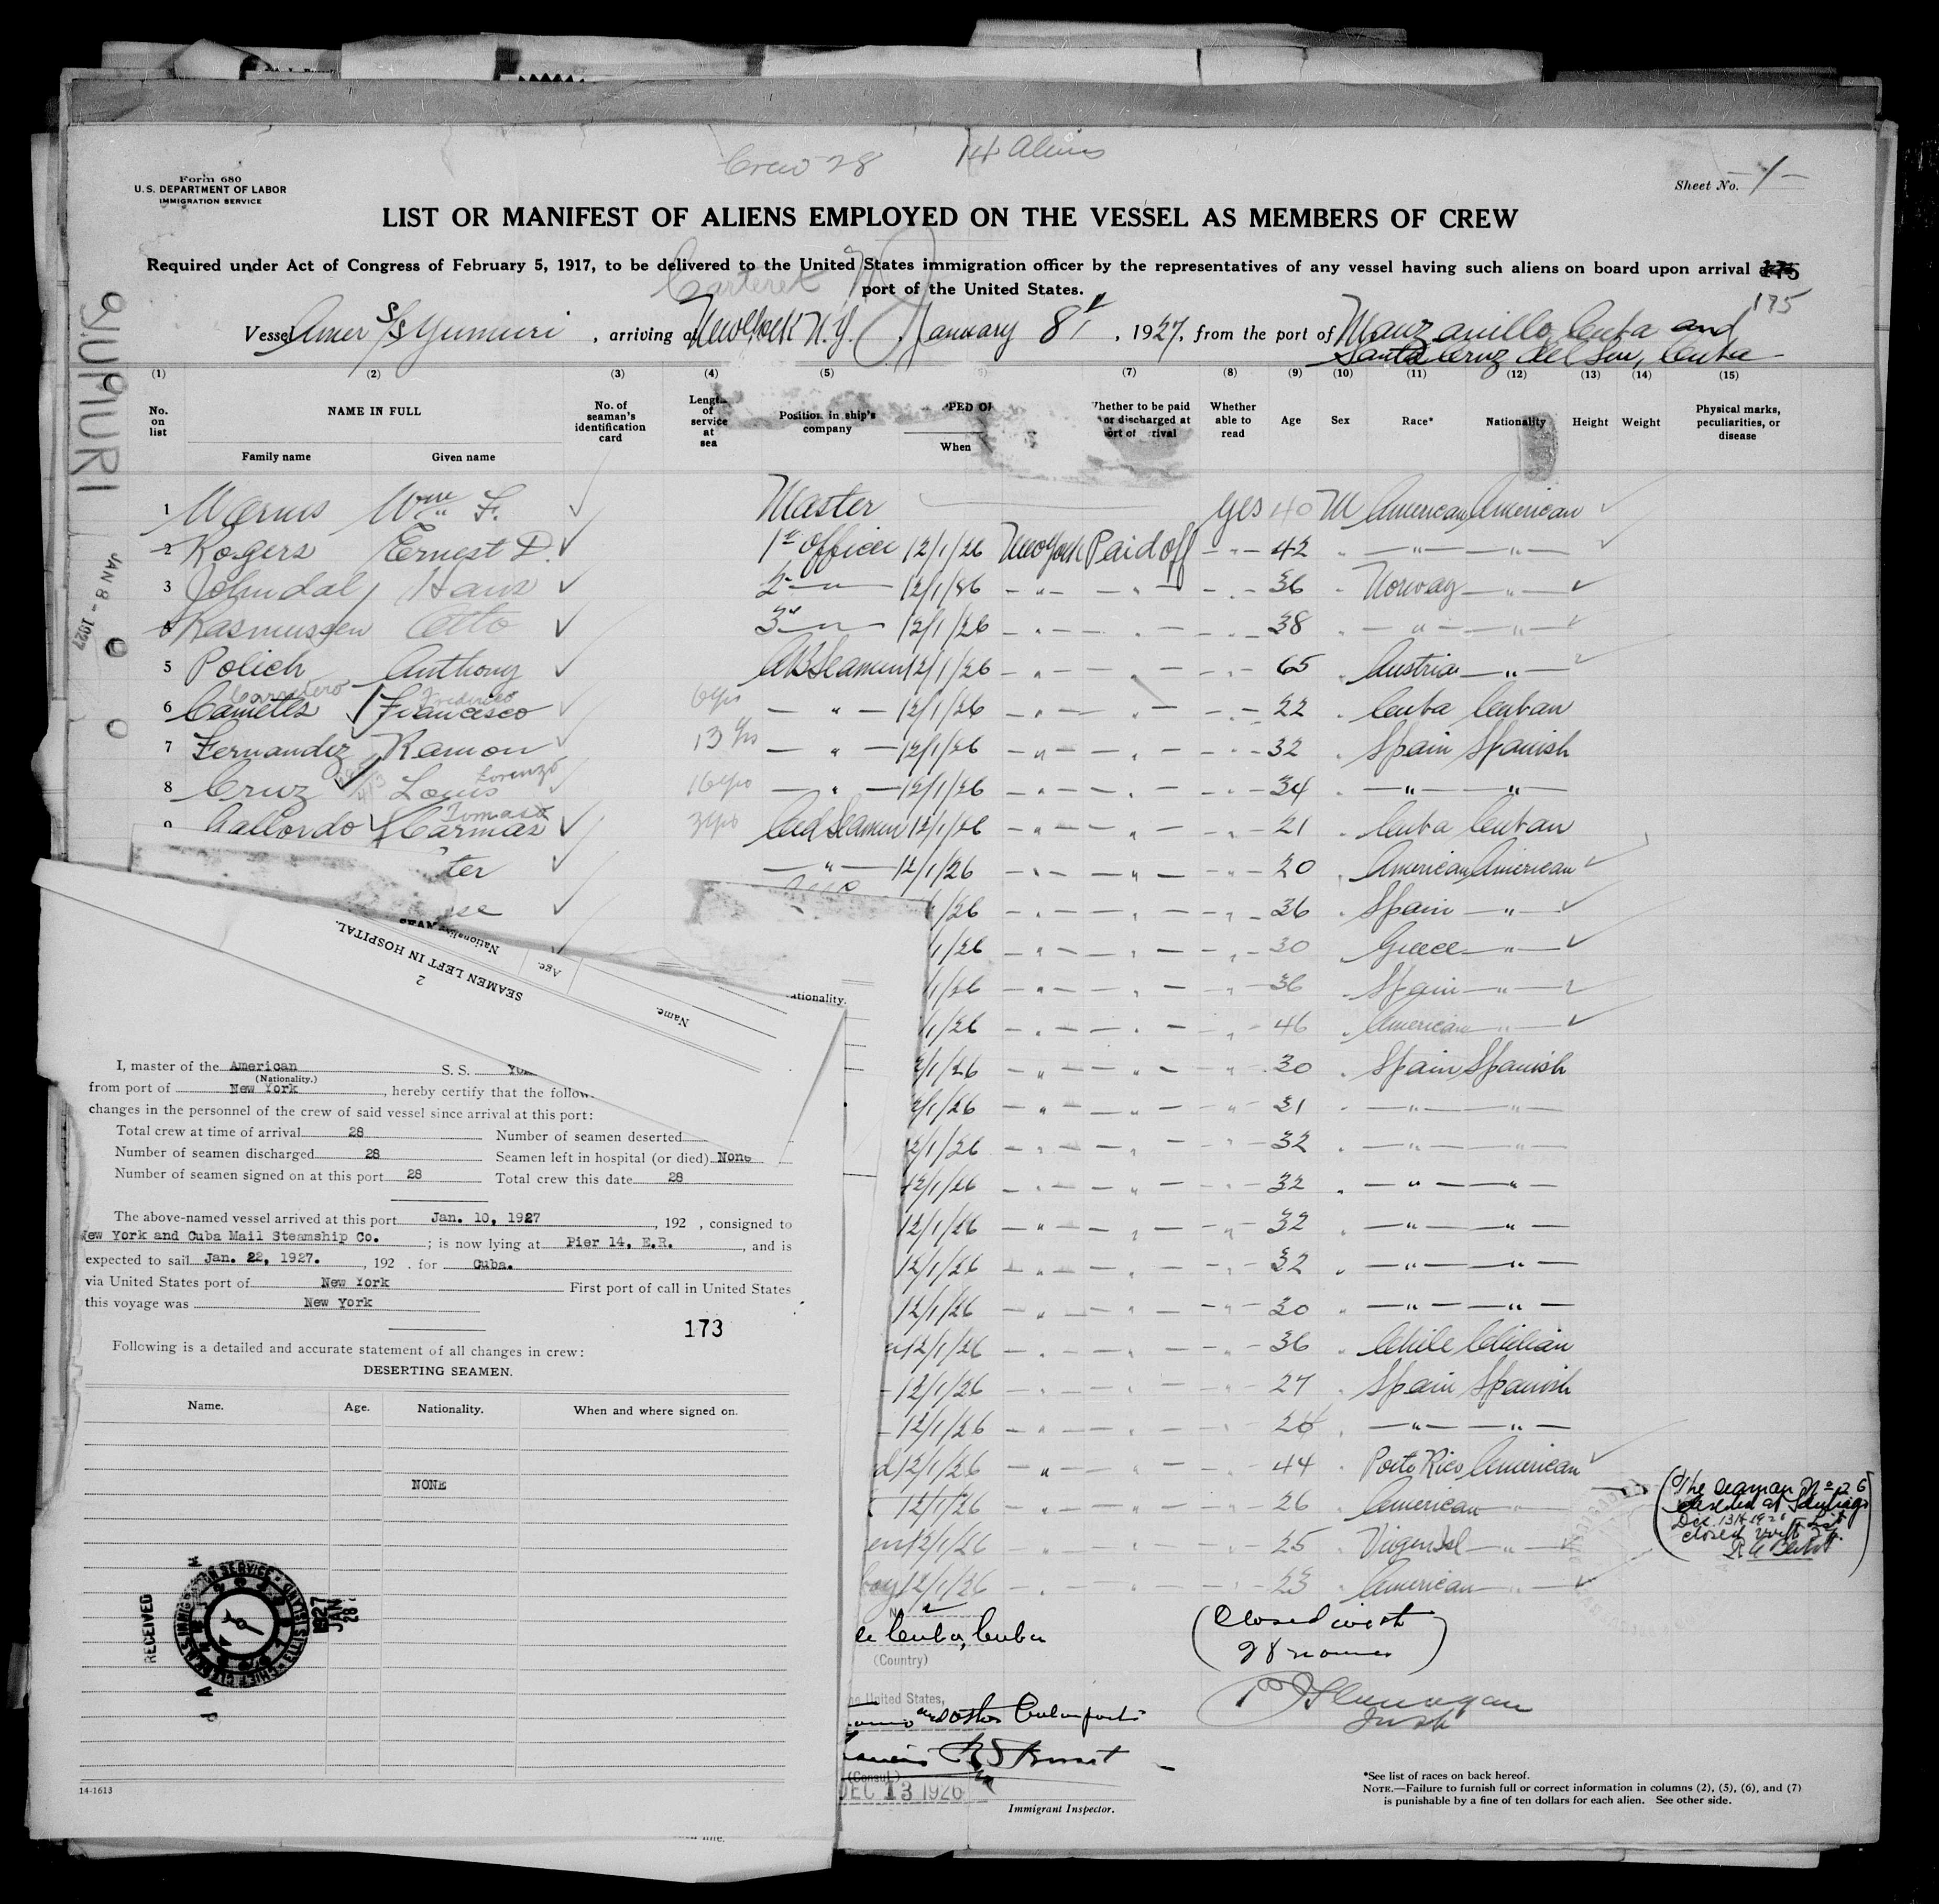 Crew 28
14 Aliens
Form 680
U.S. DEPARTMENT OF LABOR
IMMIGRATION SERVICE
Sheet No. -1-
LIST OR MANIFEST OF ALIENS EMPLOYED ON THE VESSEL AS MEMBERS OF CREW
Required under Act of Congress of February 5, 1917, to be delivered to the United States immigration officer by the representatives of any vessel having such aliens on board upon arrival
port of the United States.
Carteret N.J.
175
175
Vessel Amer S/S Yumuri, arriving at New York N.Y. January 8th, 1927, from the port of Manzanillo, Cuba and
Santa Cruz del Sur, Cuba
(1) (2) (3) (4) (5) (7) (8) (9) (10) (11) (12) (13) (14) (15)
No. on list
NAME IN FULL
Family name
Given name
No. of seaman's identification card
Length of service at sea
Position in ship's company
When
Whether able to read
Age
Sex
Race*
Nationality
Height
Weight
Physical marks, peculiarities, or disease
YUMURI
JAN 8 - 1927
1 Warms Wm F. Master yes 40 M American American
2 Rogers Ernest D. 1st officer 12/1/26 New York Paid off - " - 42 " - " - - " -
3 Johndal, Hans 2 - " - 12/1/26 - " - - " - - " - 36 " Norway - " -
4 Rasmussen Otto 3rd - " - 12/1/26 - " - - " - - " - 38 " - " - - " -
5 Polich Anthony AB Seaman 12/1/26 - " - - " - - " - 65 " Austria - " -
Carretero Frederico
6 Francisco 6 yrs - " - 12/1/26 - " - - " - - " - 22 " Cuba Cuban
7 Fernandez Ramon 13 yrs - " - 12/1/26 - " - - " - - " - 32 " Spain Spanish
Lorenzo
8 Cruz Louis 16 yrs - " - 12/1/26 - " - - " - - " - 34 " - " - - " -
Tomas
9 Gallordo Carmas 3 yrs Ord Seaman 12/1/26 - " - - " - - " - 21 " Cuba Cuban
ter - " - 12/1/26 - " - - " - - " - 20 " American American
se /26 - " - - " - - " - 36 " Spain - " -
1/26 - " - - " - - " - 30 Greece - " -
1/26 - " - - " - - " - 36 " Spain - " -
1/26 - " - - " - - " - 46 " American - " -
2/1/26 - " - - " - - " - 30 " Spain Spanish
2/1/26 - " - - " - - " - 31 " - " - - " -
2/1/26 - " - - " - - " - 32 " - " - - " -
12/1/26 - " - - " - - " - 32 " - " - - " -
12/1/26 - " - - " - - " - 32 " - " - - " -
12/1/26 - " - - " - - " - 32 " - " - - " -
12/1/26 - " - - " - - " - 30 " - " - - " -
12/1/26 - " - - " - - " - 36 " Chile Chilian
12/1/26 - " - - " - - " - 27 " Spain Spanish
12/1/26 - " - - " - - " - 26 " - " - - " -
d 12/1/26 - " - - " - - " - 44 " Porto Rico American
12/1/26 - " - - " - - " - 26 " American - " -
en 12/1/26 - " - - " - - " - 25 " Virgen Isl - " -
boy 12/1/26 - " - - " - - " - 23 " American - " -
(The seaman No 26
deserted at Santiago
Dec. 13th 1926 List
closed with 27.
Cuba, Cuba
(Country)
(Closed with
28 names)
P J Flanagan
Insp
United States,
and other Cuban ports
(Consul)
DEC 13 1926
Immigrant Inspector.
*See list of races on back hereof.
NOTE.—Failure to furnish full or correct information in columns (2), (5), (6), and (7)
is punishable by a fine of ten dollars for each alien. See other side.
SEAMEN LEFT IN HOSPITAL.
2
Name.
Age.
Nationality
I, master of the American S. S.
(Nationality.)
from port of New York, hereby certify that the
changes in the personnel of the crew of said vessel since arrival at this port:
Total crew at time of arrival 28 Number of seamen deserted
Number of seamen discharged 28 Seamen left in hospital (or died) None
Number of seamen signed on at this port 28 Total crew this date 28
The above-named vessel arrived at this port Jan. 10, 1927, 192 , consigned to
New York and Cuba Mail Steamship Co. ; is now lying at Pier 14, E.R., and is
expected to sail Jan. 22, 1927., 192 . for Cuba.
via United States port of New York First port of call in United States
this voyage was New York
173
Following is a detailed and accurate statement of all changes in crew:
DESERTING SEAMEN.
Name. Age. Nationality. When and where signed on.
NONE
RECEIVED
1927 JAN 28
14-1613